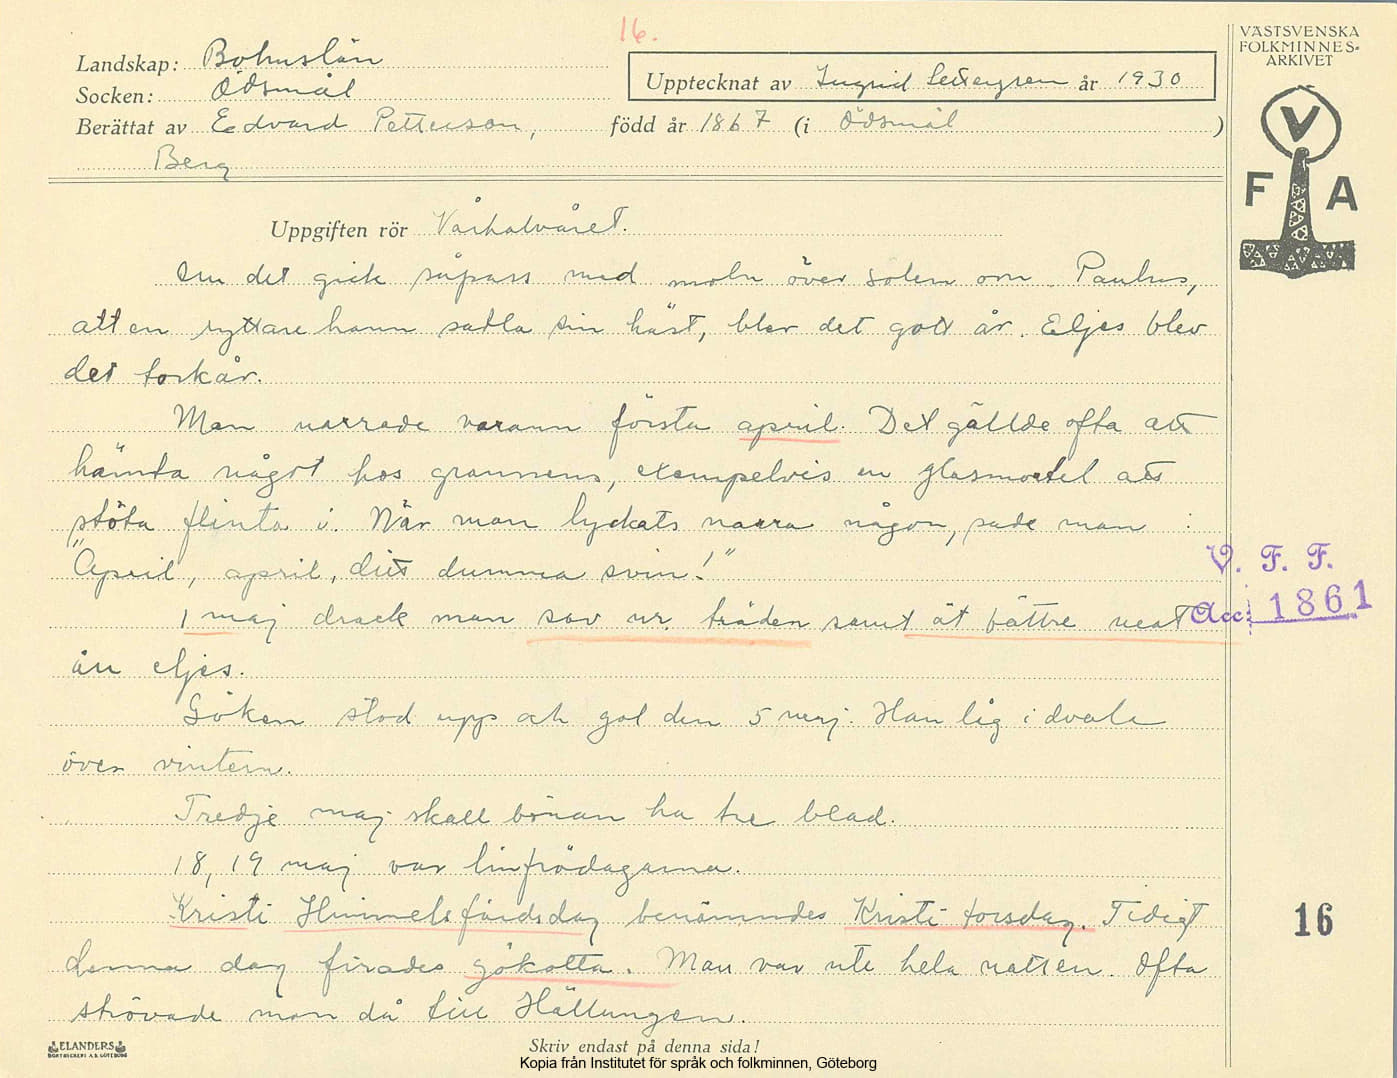 16.
VÄSTSVENSKA
FOLKMINNES-
ARKIVET
Landskap: Bohuslän
Socken: Ödsmål
Upptecknat av Ingrid år 1930
Berättat av Edvard Petterson, född år 1867 (i Ödsmål )
Berg
V
F A
Uppgiften rör Vårhalvåret.
Om det gick såpass med moln över solen om Paulus,
att en ryttare hann sadla sin häst, blev det gott år. Eljes blev
det torkår.
Man narrade varann första april. Det gällde ofta att
hämta något hos grannens, exempelvis en glasmortel att
stöta flinta i. När man lyckats narra någon, sade man :
"April, april, ditt dumma svin!"
V. F. F.
Acc: 1861
1 maj drack man sav ur träden samt åt bättre mat
än eljes.
Göken stod upp och gol den 5 maj. Han låg i dvala
över vintern.
Tredje maj skall bönan ha tre blad.
18, 19 maj var linfrödagarna.
Kristi Himmelsfärdsdag benämndes Kristi torsdag. Tidigt
16
denna dag firades gökotta. Man var ute hela natten. Ofta
strövade man då till Hällungen.
ELANDERS
BOKTRYCKERI A.B. GÖTEBORG
Skriv endast på denna sida!
Kopia från Institutet för språk och folkminnen, Göteborg